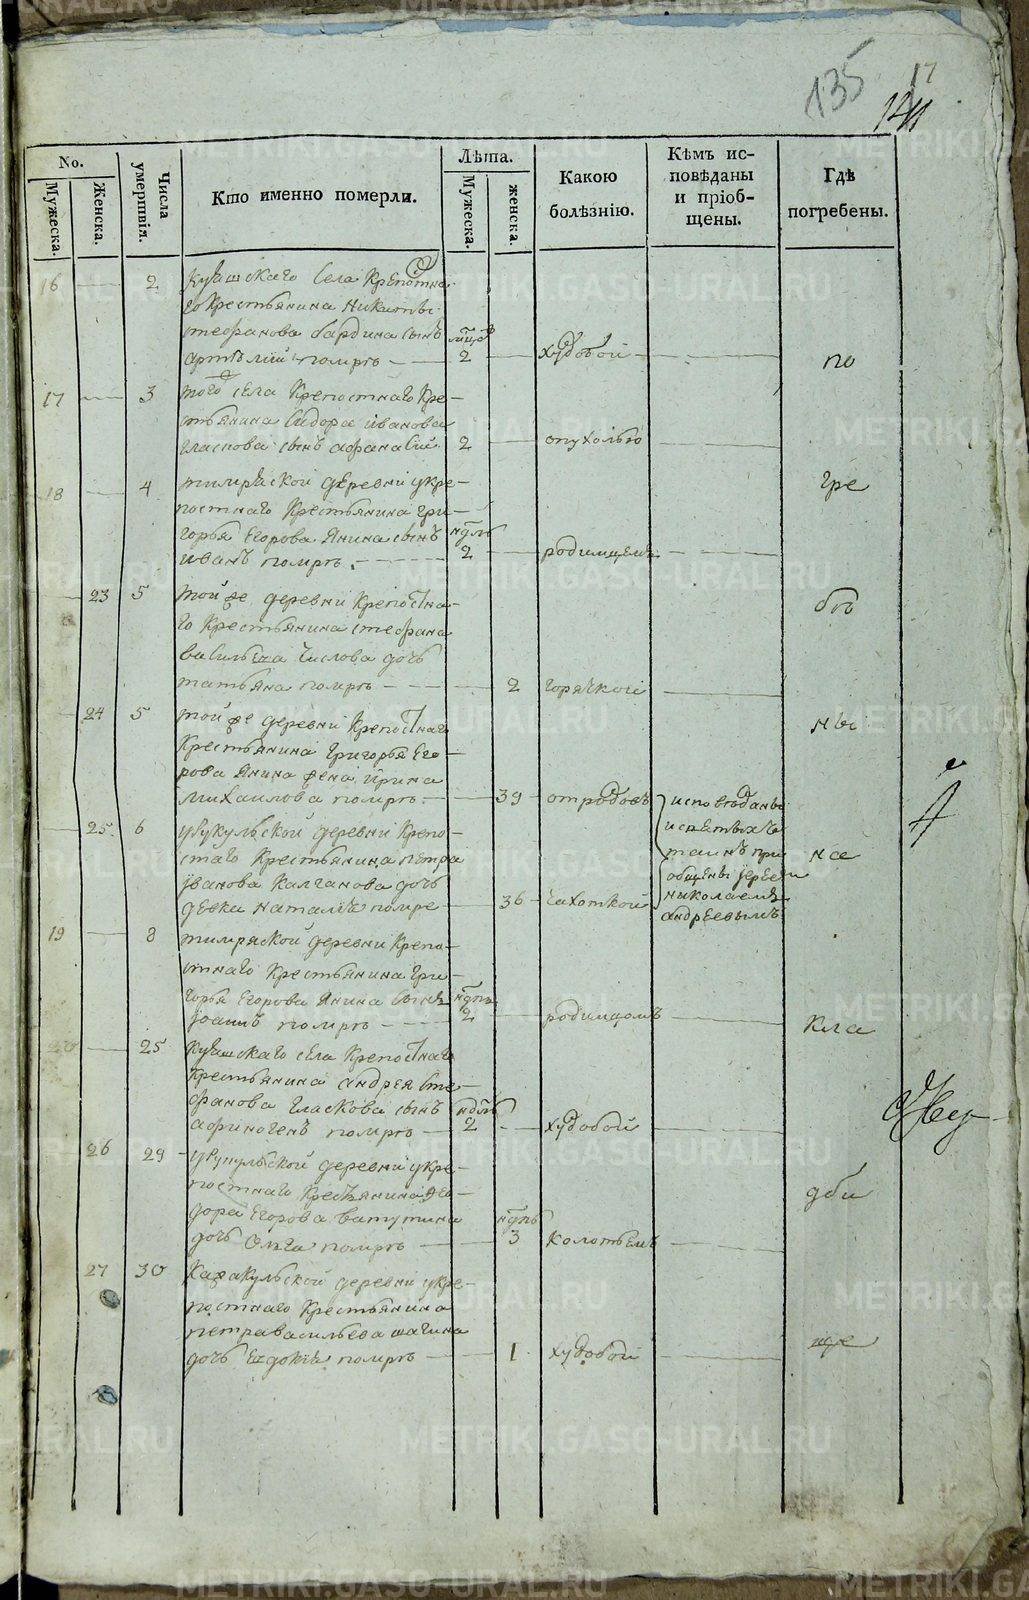 135
17
No.
Мужеска.
Женска.
Числа умертвія.
Кто именно померли.
Лѣта.
Мужеска.
женска.
Какою болѣзнію.
Кѣмъ исповѣданы и пріобщены.
Гдѣ погребены.
16 2 Куяшскаго села Крепостна
го Крестьянина Никиты
стефанова бардина сынъ мцов
артемий помрѣ 2 худобой по
17 3 того села Крепостнаго Кре
стьянина Сидора иванова
гласкова сынъ афанасий 2 опухолью
18 4 тимряской деревни укре гре
постнаго Крестьянина гри
горья Егорова Янина сынъ ндль
иванъ помрѣ 2 родимцемъ
23 5 той же деревни Крепостна бѣ
го Крестьянина стефана
василь числова дочь
татьяна помрѣ 2 горячкой
24 5 той же деревни Крепостнаго ны
Крестьянина григорья Его
рова Янина жена ирина
михаилова помрѣ 39 от родовъ исповѣданы
25 6 урукульской деревни Крепо и святыхъ
стнаго Крестьянина петра таинъ при на
иванова Калганова дочь общены іереемъ
девка наталья помре 36 чахоткой николаемъ
андреевымъ
19 8 тимряской деревни Крепо
стнаго Крестьянина гри
горья Егорова Янина сынъ ндль
іоаннъ помрѣ 2 родимцомъ кла
20 25 Куяшскаго села Крепостнаго
Крестьянина андрея сте
фанова гласкова сынъ ндль
афиногенъ помрѣ 2 худобой
26 29 урукульской деревни укре
постнаго Крестьянина дби
дора Егорова ватутина ндль
дочь Ольга помрѣ 3 колотьемъ
27 30 Каракульской деревни укре
постнаго Крестьянина
петра васильева шагина ще
дочь Евдокия помрѣ 1 худобой
METRIKI.GASO-URAL.RU